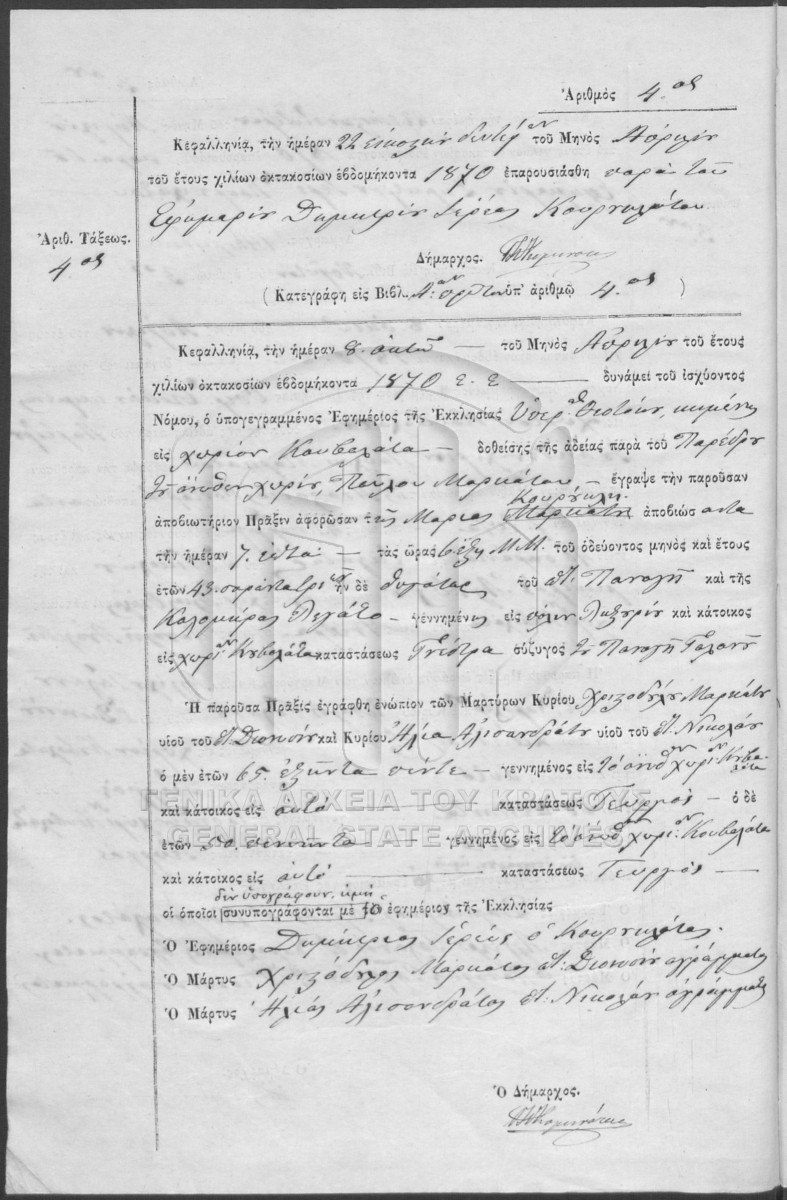 Ἀριθμὸς 4.ος
Κεφαλληνίᾳ, τὴν ἡμέραν 22 τοῦ Μηνὸς Ἀπριλίου
τοῦ ἔτους χιλίων ὀκτακοσίων ἑβδομήκοντα 1870 ἐπαρουσιάσθη παρὰ τοῦ
Ἐφημερίου Δημητρίου Ἱερέως
Ἀριθ. Τάξεως.
4ος
Δήμαρχος.
( Κατεγράφη εἰς Βιβλ. ὑπ' ἀριθμῷ 4.ος )
Κεφαλληνίᾳ, τὴν ἡμέραν 8. ὀκτὼ τοῦ Μηνὸς Ἀπριλίου τοῦ ἔτους
χιλίων ὀκτακοσίων ἑβδομήκοντα 1870 Ε. Ε δυνάμει τοῦ ἰσχύοντος
Νόμου, ὁ ὑπογεγραμμένος Ἐφημέριος τῆς Ἐκκλησίας Ὑπερ. Θεοτόκου, κειμένης
εἰς χωρίον Κουβαλάτα δοθείσης τῆς ἀδείας παρὰ τοῦ Παρέδρου
Παύλου Μαρκάτου ἔγραψε τὴν παροῦσαν
ἀποβιωτήριον Πρᾶξιν ἀφορῶσαν τῆς Μαρίας Μαρκάτου ἀποβιώσαντα
τὴν ἡμέραν 7. ἑπτὰ τὰς ὥρας 6 ἕξη Μ.Μ. τοῦ ὁδεύοντος μηνὸς καὶ ἔτους
ἐτῶν 43. σαράντα τριῶν ἦν δὲ θυγάτηρ τοῦ Παναγῆ καὶ τῆς
γεννημένης εἰς πόλιν Ληξουρίου καὶ κάτοικος
εἰς χωρίον Κουβαλάτα καταστάσεως σύζυγος τοῦ Παναγῆ
Ἡ παροῦσα Πρᾶξις ἐγράφθη ἐνώπιον τῶν Μαρτύρων Κυρίου Χριζοδούλου Μαρκάτου
υἱοῦ τοῦ Διονυσίου καὶ Κυρίου Ἠλία Ἀλισανδράτου υἱοῦ τοῦ Νικολάου
ὁ μὲν ἐτῶν 65. ἑξῆντα πέντε γεννημένος εἰς τὸ ἄνωθεν χωρίον Κουβαλάτα
καὶ κάτοικος εἰς αὐτὸ καταστάσεως Γεωργὸς ὁ δὲ
ἐτῶν 50. πενῆντα γεννημένος εἰς τὸ ἄνωθεν χωρίον Κουβαλάτα
καὶ κάτοικος εἰς αὐτὸ καταστάσεως Γεωργὸς
δὲν ὑπογράφουν,
οἱ ὁποῖοι συνυπογράφονται μὲ τὸ ἐφημέριος τῆς Ἐκκλησίας
Ὁ Ἐφημέριος Δημήτριος Ἱερεὺς ὁ
Ὁ Μάρτυς Χριζόδουλος Μαρκάτος Διονυσίου ἀγράμματος
Ὁ Μάρτυς Ἠλίας Ἀλισανδράτος Νικολάου ἀγράμματος
Ὁ Δήμαρχος.
ΓΕΝΙΚΑ ΑΡΧΕΙΑ ΤΟΥ ΚΡΑΤΟΥΣ
GENERAL STATE ARCHIVES